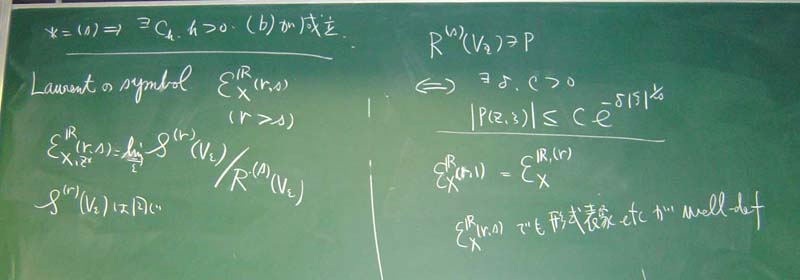 * = (s) ⇒ ∃C_h. h>0. (b) が成立.
Laurent の symbol ℰ_X^ℝ(r,s)
(r > s)
ℰ^ℝ_{X,z*}(r,s) = lim_ε S^{(r)}(V_ε) / R^{(s)}(V_ε)
S^{(r)}(V_ε) は同じ
R^{(s)}(V_ε) ∋ P
⇔ ∃δ. C > 0
|P(z,ξ)| ≤ C e^{-δ|ξ|^{1/s}}
ℰ_X^ℝ(r,1) = ℰ_X^{ℝ,(r)}
ℰ_X^ℝ(r,s) でも 形式表象 etc が well-def